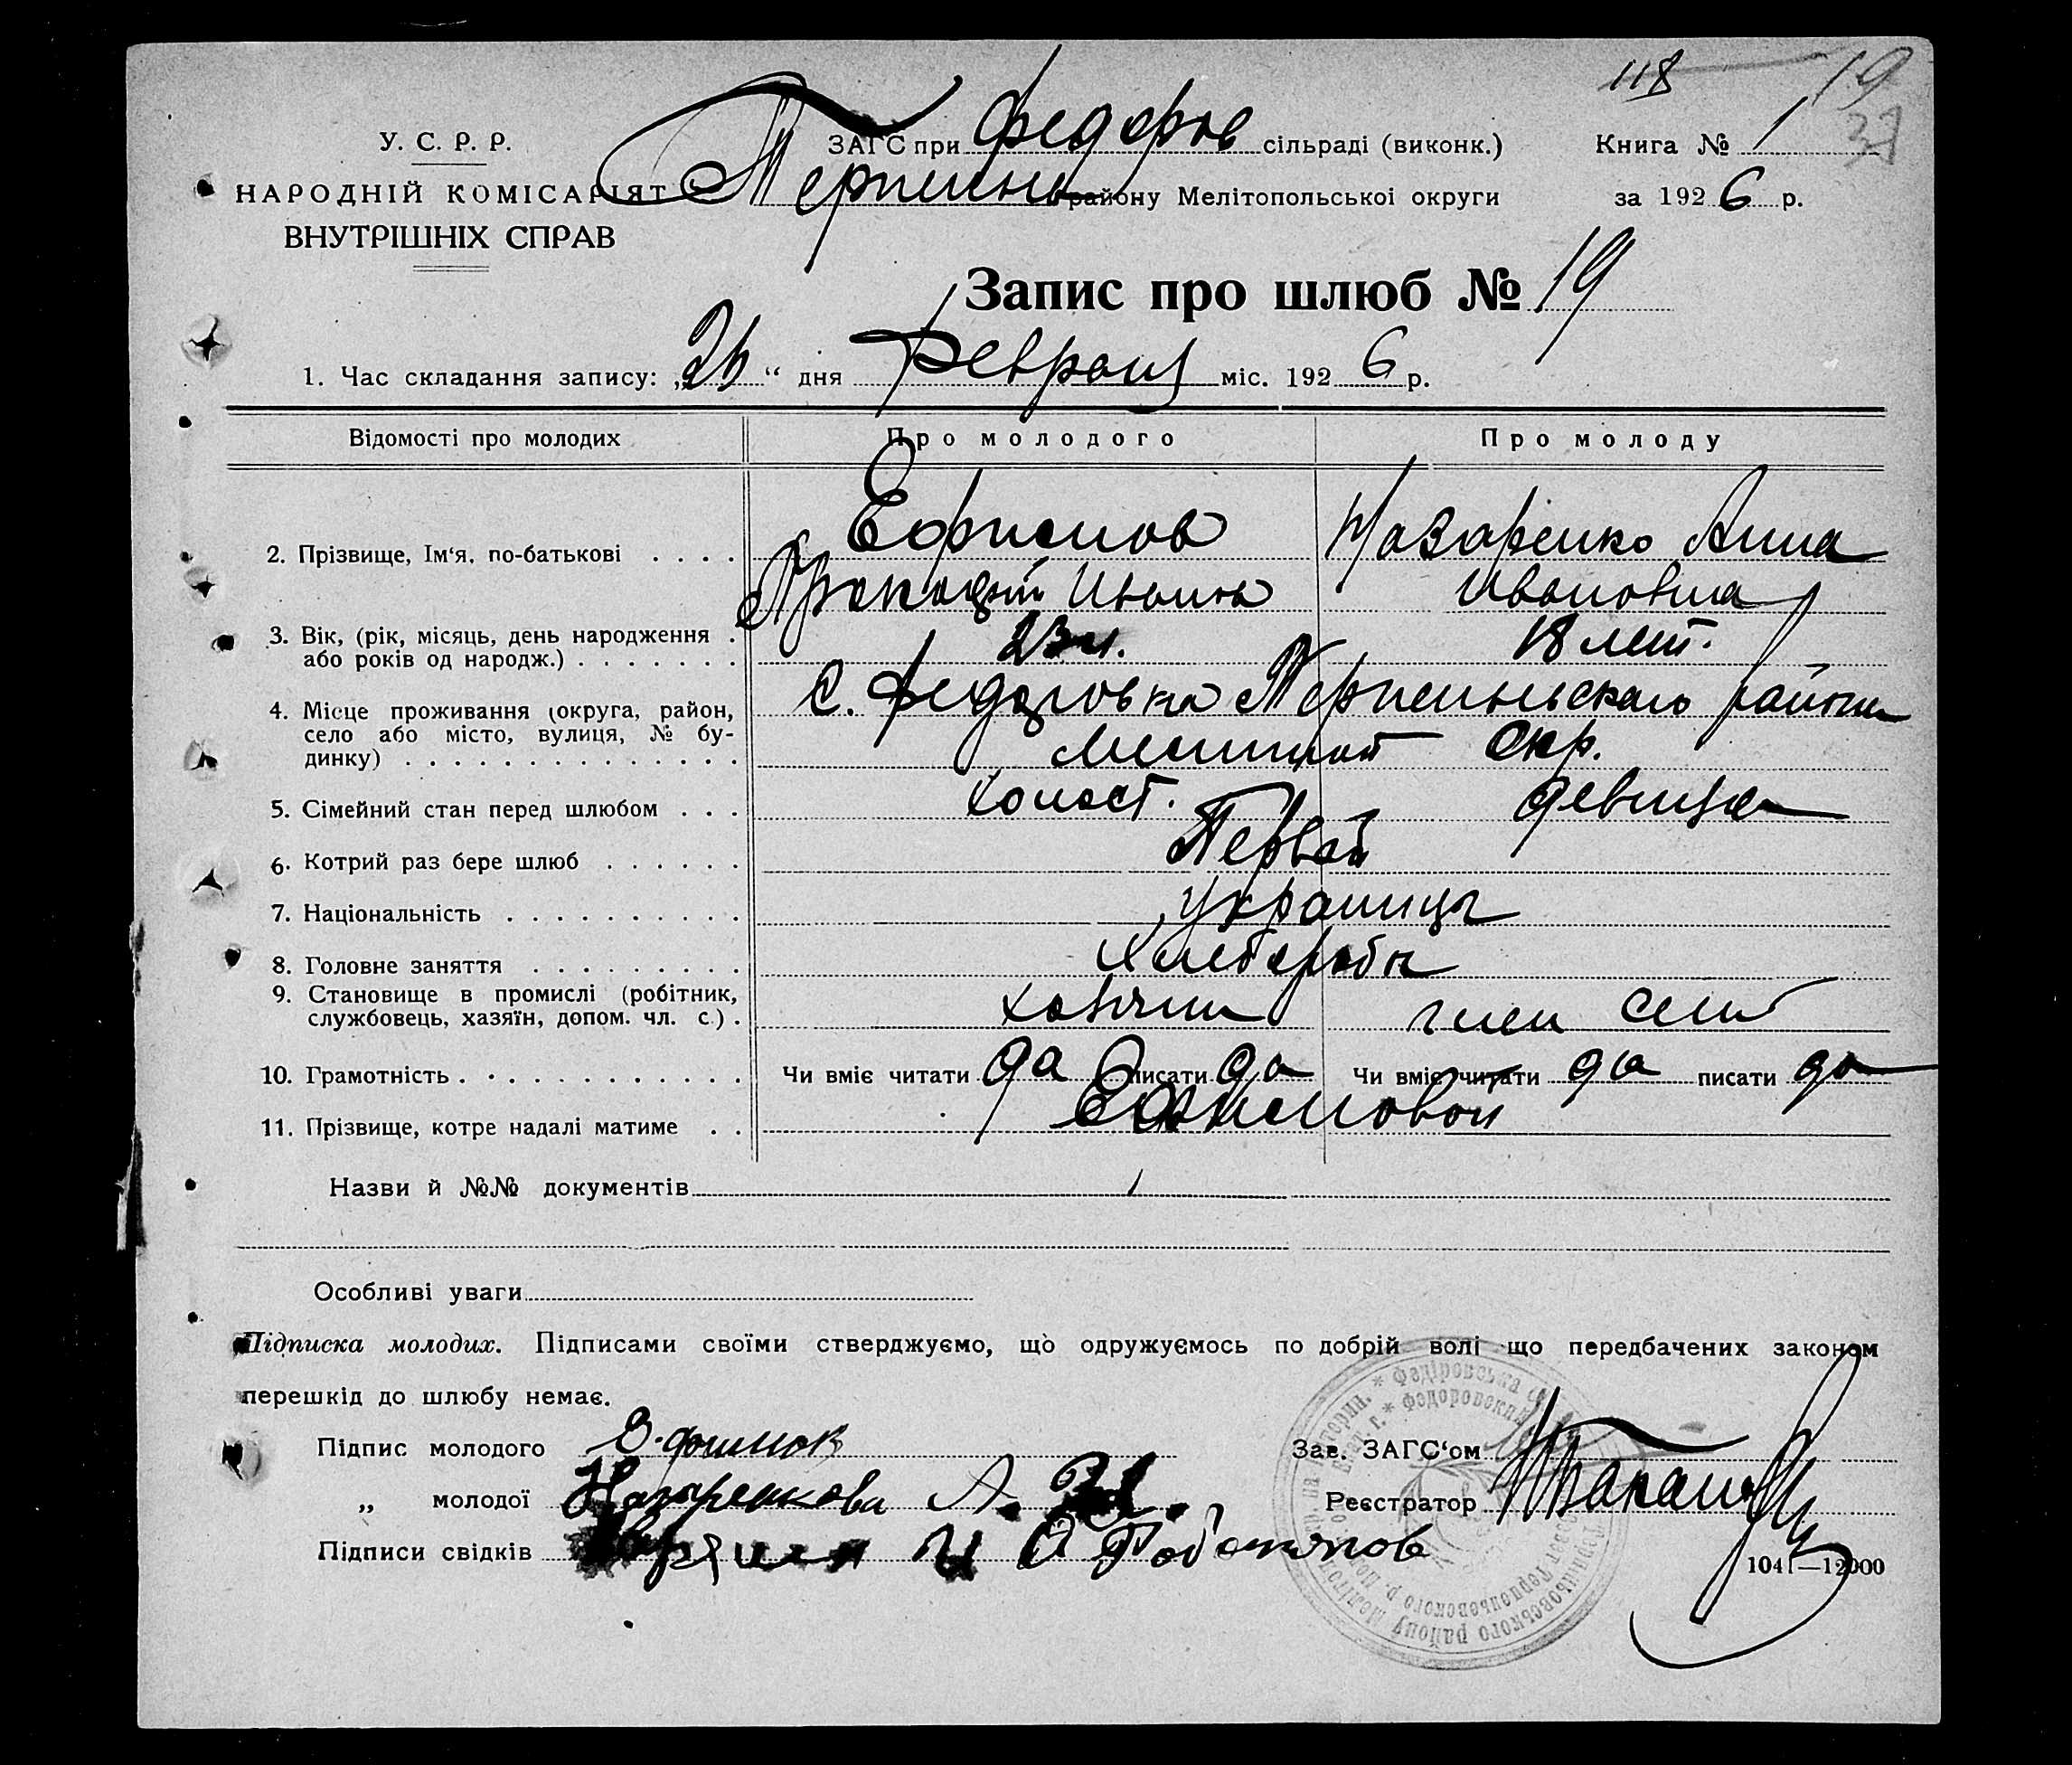 118 19
37
У. С. Р. Р.
ЗАГС при Федоров сільраді (виконк.) Книга № 1
НАРОДНІЙ КОМІСАРІЯТ
Терпеньн району Мелітопольської округи за 1926 р.
ВНУТРІШНІХ СПРАВ
Запис про шлюб № 19
1. Час складання запису: „26“ дня Февраля міс. 1926 р.
Відомості про молодих Про молодого Про молоду
2. Прізвище, Ім'я, по-батькові . . . . Ефимов Назаренко Анна
Иванов Ивановна
3. Вік, (рік, місяць, день народження . 23 л. 18 лет.
або років од народж.) . . . . . . .
4. Місце проживання (округа, район, с. Федоровка Терпеньевскаго района
село або місто, вулиця, № бу-
динку) . . . . . . . . . . . . . . Мелитоп Окр.
5. Сімейний стан перед шлюбом . . . холост. девица
6. Котрий раз бере шлюб . . . . . . Первый
7. Національність . . . . . . . . . . Украинцы
8. Головне заняття . . . . . . . . . Хлеборобы
9. Становище в промислі (робітник,
службовець, хазяїн, допом. чл. с.) . член сем
10. Грамотність . . . . . . . . . . . . Чи вміє читати да писати да Чи вміє читати да писати да
11. Прізвище, котре надалі матиме . . Ефимовой
Назви й №№ документів
Особливі уваги
Підписка молодих. Підписами своїми стверджуємо, що одружуємось по добрій волі що передбачених законом
перешкід до шлюбу немає.
Підпис молодого Зав. ЗАГС'ом
„ молодої Назаренкова А. Реєстратор
Підписи свідків 1041—12000